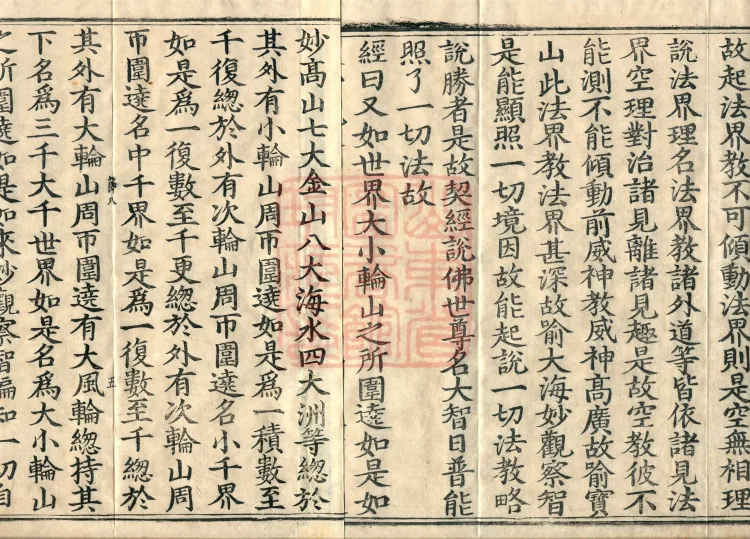 故起法界教不可傾動法界則是空無相理
說法界理名法界教諸外道等皆依諸見法
界空理對治諸見離諸見趣是故空教彼不
能測不能傾動前威神教威神髙廣故喻寶
山此法界教法界甚深故喻大海妙觀察智
是能顯照一切境因故能起說一切法教略
說勝者是故契經說佛世尊名大智日普能
照了一切法故
經曰又如世界大小輪山之所圍遶如是如
妙髙山七大金山八大海水四大洲等緫於
其外有小輪山周帀圍遶如是爲一積數至
千復緫於外有次輪山周帀圍遶名小千界
如是爲一復數至千更緫於外有次輪山周
帀圍遶名中千界如是爲一復數至千緫於
其外有大輪山周帀圍遶有大風輪緫持其
下名爲三千大千世界如是名爲大小輪山
之所圍遶如是如來妙觀察智徧知一切自
五